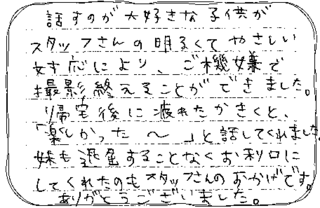 話すのが大好きな子供が
スタッフさんの明るくてやさしい
対応により、ご機嫌で
撮影終えることができました。
帰宅後に疲れたかきくと、
「楽しかった～」と話してくれました
妹も退屈することなくお利口に
してくれたのもスタッフさんのおかげです。
ありがとうございました。